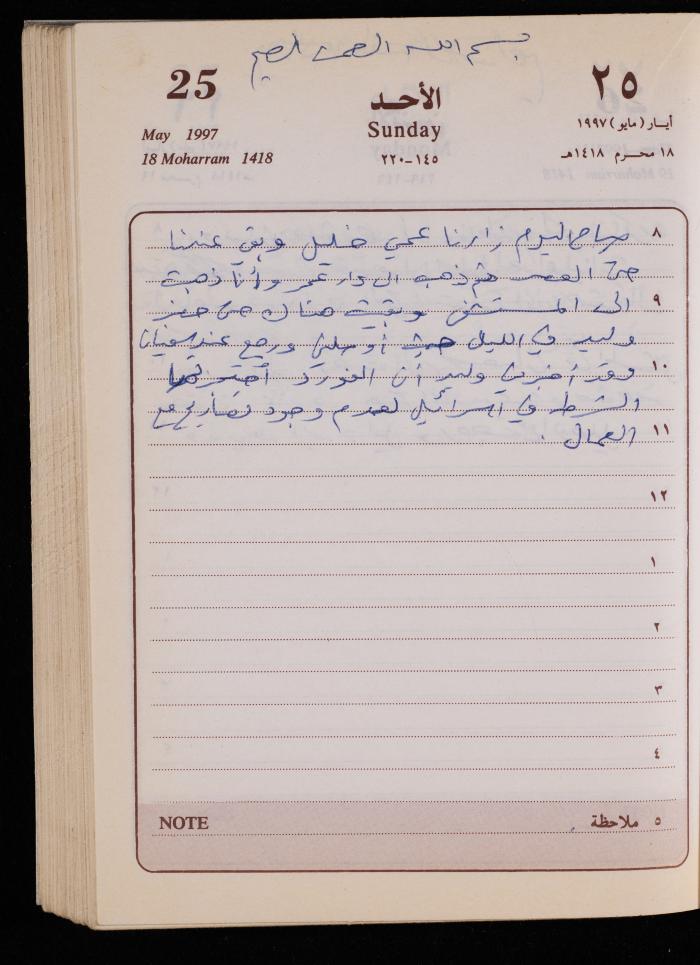 بسم الله الرحمن الرحيم
25
الأحد
٢٥
May 1997
Sunday
أيار (مايو) ١٩٩٧
18 Moharram 1418
١٤٥-٢٢٠
١٨ محرم ١٤١٨هـ
صباح اليوم زارنا عمي خليل وبقي عندنا
٨
حتى العصر ثم ذهب الى دار عمر وأنا ذهبت
الى المستشفى وبقيت هناك حتى حضر
٩
وليد في الليل حيث أوصلني ورجع عند سفيان
وقد أخبرني وليد أن الفورد احتجزتها
١٠
الشرطة في اسرائيل لعدم وجود تصاريح مع
العمال .
١١
١٢
١
٢
٣
٤
NOTE
٥ ملاحظة